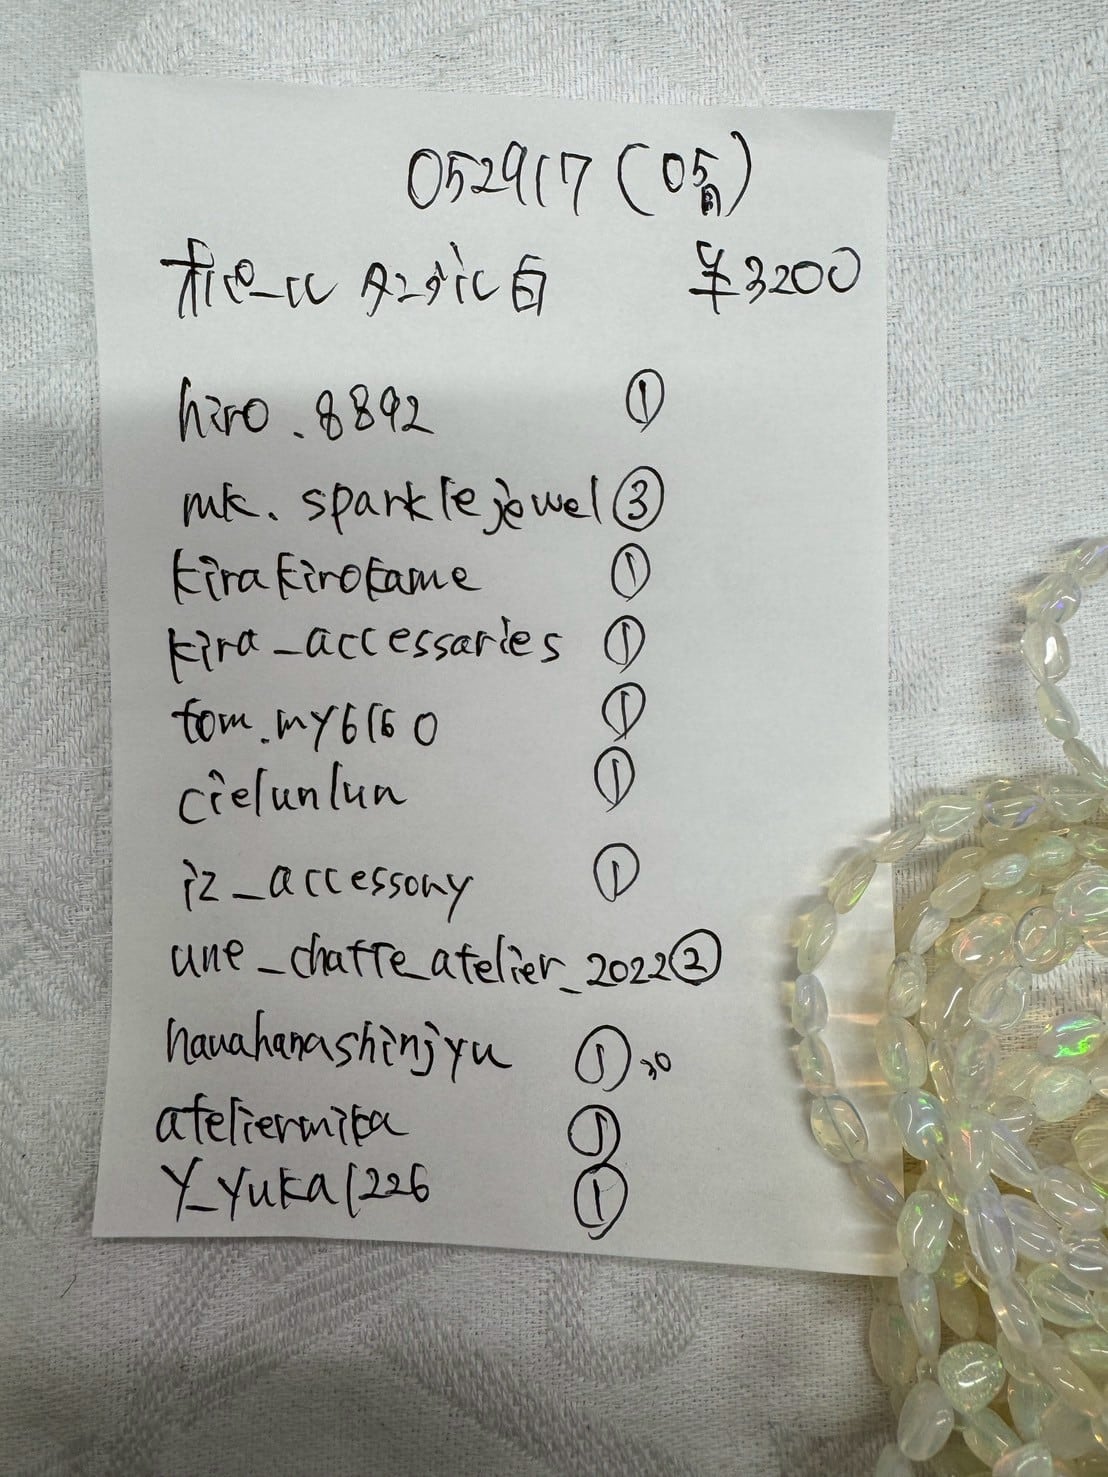 052917 (05月)
オパール タンブル 白 ¥3200
hiro.8892 ①
mk.sparklejewel ③
kirakirokame ①
kira_accessaries ①
tom.my6160 ①
cielunlun ①
iz_accessony ①
une_chatte_atelier_2022 ②
hanahanashinjyu ① 30
ateliermika ①
Y_yuka1226 ①